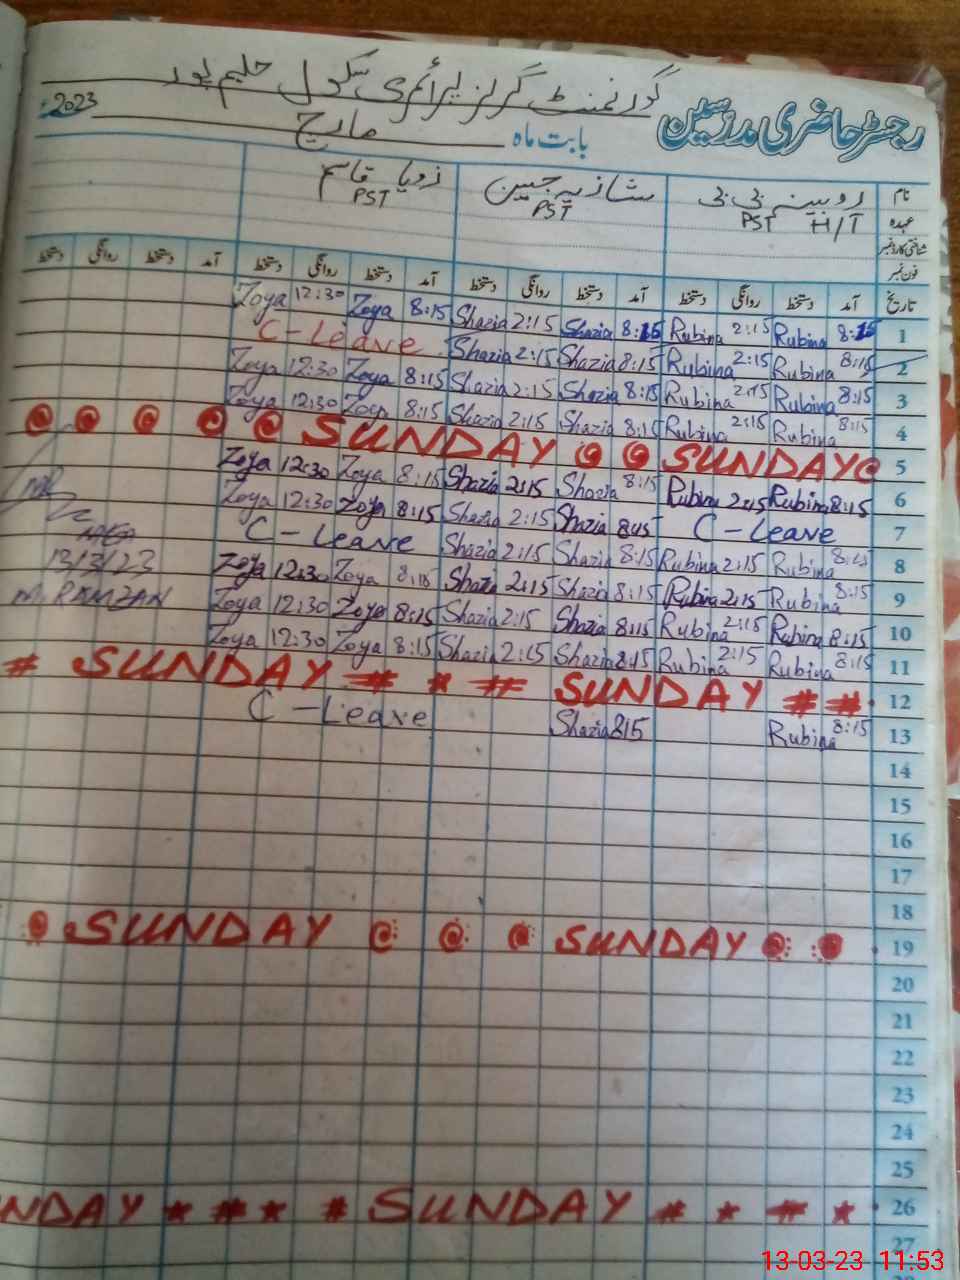 گورنمنٹ گرلز پرائمری سکول حلیم پور
رجسٹر حاضری مدرسین بابت ماہ مارچ 2023ء
نام روبینہ بی بی شازیہ جبین زویا قاسم
عہدہ H/T PST PST PST
شناختی کارڈ نمبر
فون نمبر
تاریخ آمد دستخط روانگی دستخط آمد دستخط روانگی دستخط آمد دستخط روانگی دستخط آمد دستخط روانگی دستخط
Zoya 12:30 Zoya 8:15 Shazia 2:15 Shazia 8:15 Rubina 2:15 Rubina 8:15 1
C - Leave Shazia 2:15 Shazia 8:15 Rubina 2:15 Rubina 8:15 2
Zoya 12:30 Zoya 8:15 Shazia 2:15 Shazia 8:15 Rubina 2:15 Rubina 8:15 3
Zoya 12:30 Zoya 8:15 Shazia 2:15 Shazia 8:15 Rubina 2:15 Rubina 8:15 4
SUNDAY SUNDAY 5
Zoya 12:30 Zoya 8:15 Shazia 2:15 Shazia 8:15 Rubina 2:15 Rubina 8:15 6
Zoya 12:30 Zoya 8:15 Shazia 2:15 Shazia 8:15 C - Leave 7
C - Leave Shazia 2:15 Shazia 8:15 Rubina 2:15 Rubina 8:15 8
13/3/23 Zoya 12:30 Zoya 8:15 Shazia 2:15 Shazia 8:15 Rubina 2:15 Rubina 8:15 9
M. RAMZAN Zoya 12:30 Zoya 8:15 Shazia 2:15 Shazia 8:15 Rubina 2:15 Rubina 8:15 10
Zoya 12:30 Zoya 8:15 Shazia 2:15 Shazia 8:15 Rubina 2:15 Rubina 8:15 11
# SUNDAY # * # SUNDAY # # 12
C - Leave Shazia 815 Rubina 8:15 13
14
15
16
17
18
SUNDAY SUNDAY 19
20
21
22
23
24
25
NDAY * # * # SUNDAY # * # * 26
27
13-03-23 11:53